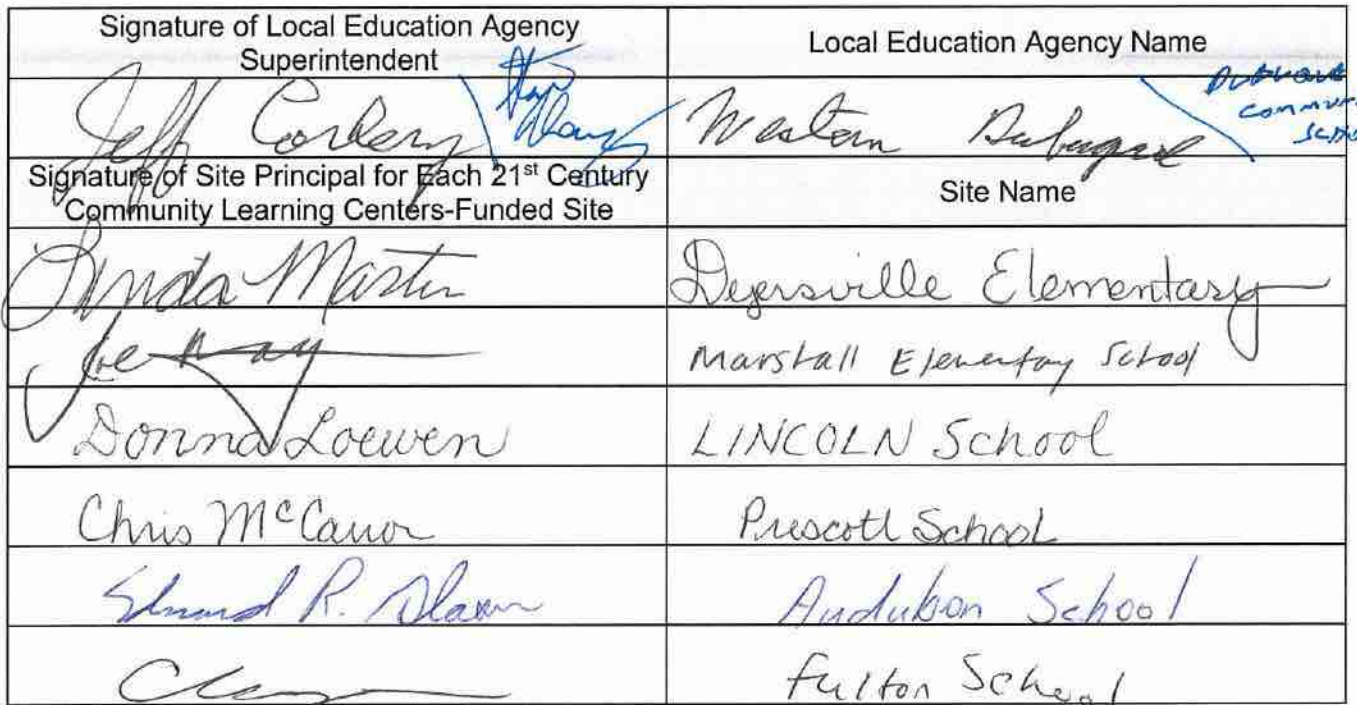 Signature of Local Education Agency
Superintendent
Local Education Agency Name
Jeff Corkery
Western Dubuque
Signature of Site Principal for Each 21st Century
Community Learning Centers-Funded Site
Site Name
Linda Martin
Dyersville Elementary
Joe
Marshall Elementary School
Donna Loewen
LINCOLN School
Chris McCarron
Prescott School
R.
Audubon School
Fulton School